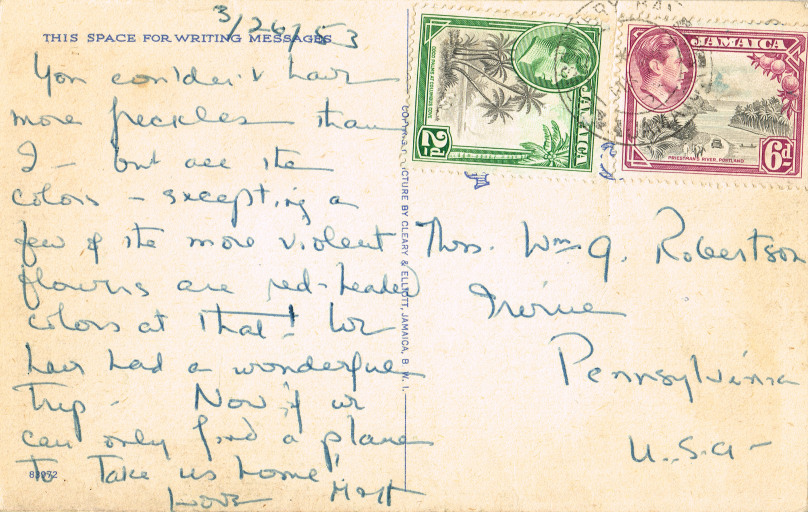 3/26/53
THIS SPACE FOR WRITING MESSAGES
You couldn't have
more freckles than
I - but all the
colors - excepting a
few of the more violent
flowers are red-headed
colors at that! We
have had a wonderful
trip - Now if we
can only find a plane
to take us home!
Love
83972
COPYR. PICTURE BY CLEARY & ELLIOTT, JAMAICA, B. W. I.
JAMAICA
2d
JAMAICA
PRIESTMAN'S RIVER, PORTLAND
6d
Mrs. Wm. G. Robertson
Irwin
Pennsylvania
U.S.A -